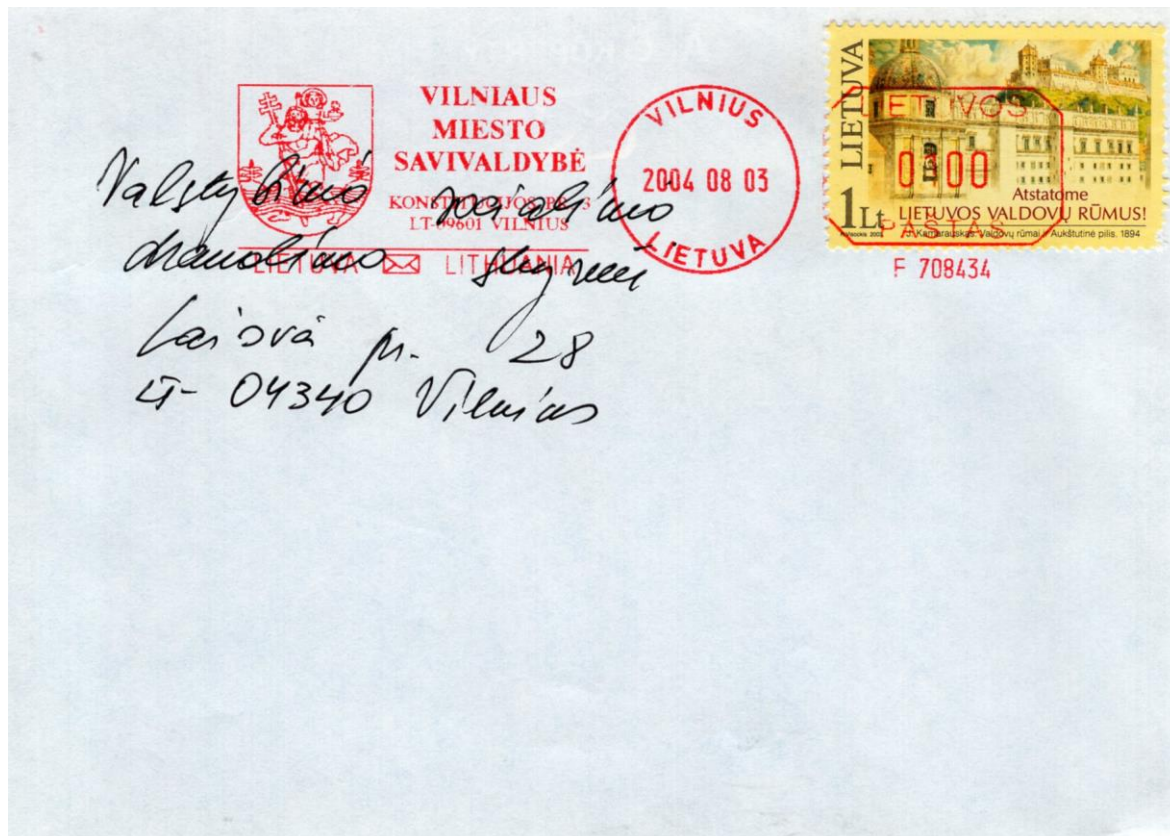 VILNIAUS
MIESTO
SAVIVALDYBĖ
KONSTITUCIJOS PR. 3
LT-09601 VILNIUS
LIETUVA LITHUANIA
VILNIUS
2004 08 03
LIETUVA
LIETUVA
LIETUVOS
0100
PAŠTAS
1 Lt
Atstatome
LIETUVOS VALDOVŲ RŪMUS!
J. Kamarauskas. Valdovų rūmai ir Aukštutinė pilis. 1894
F 708434
Valstybinio socialinio
draudimo
Laisvės pr. 28
LT-04340 Vilnius